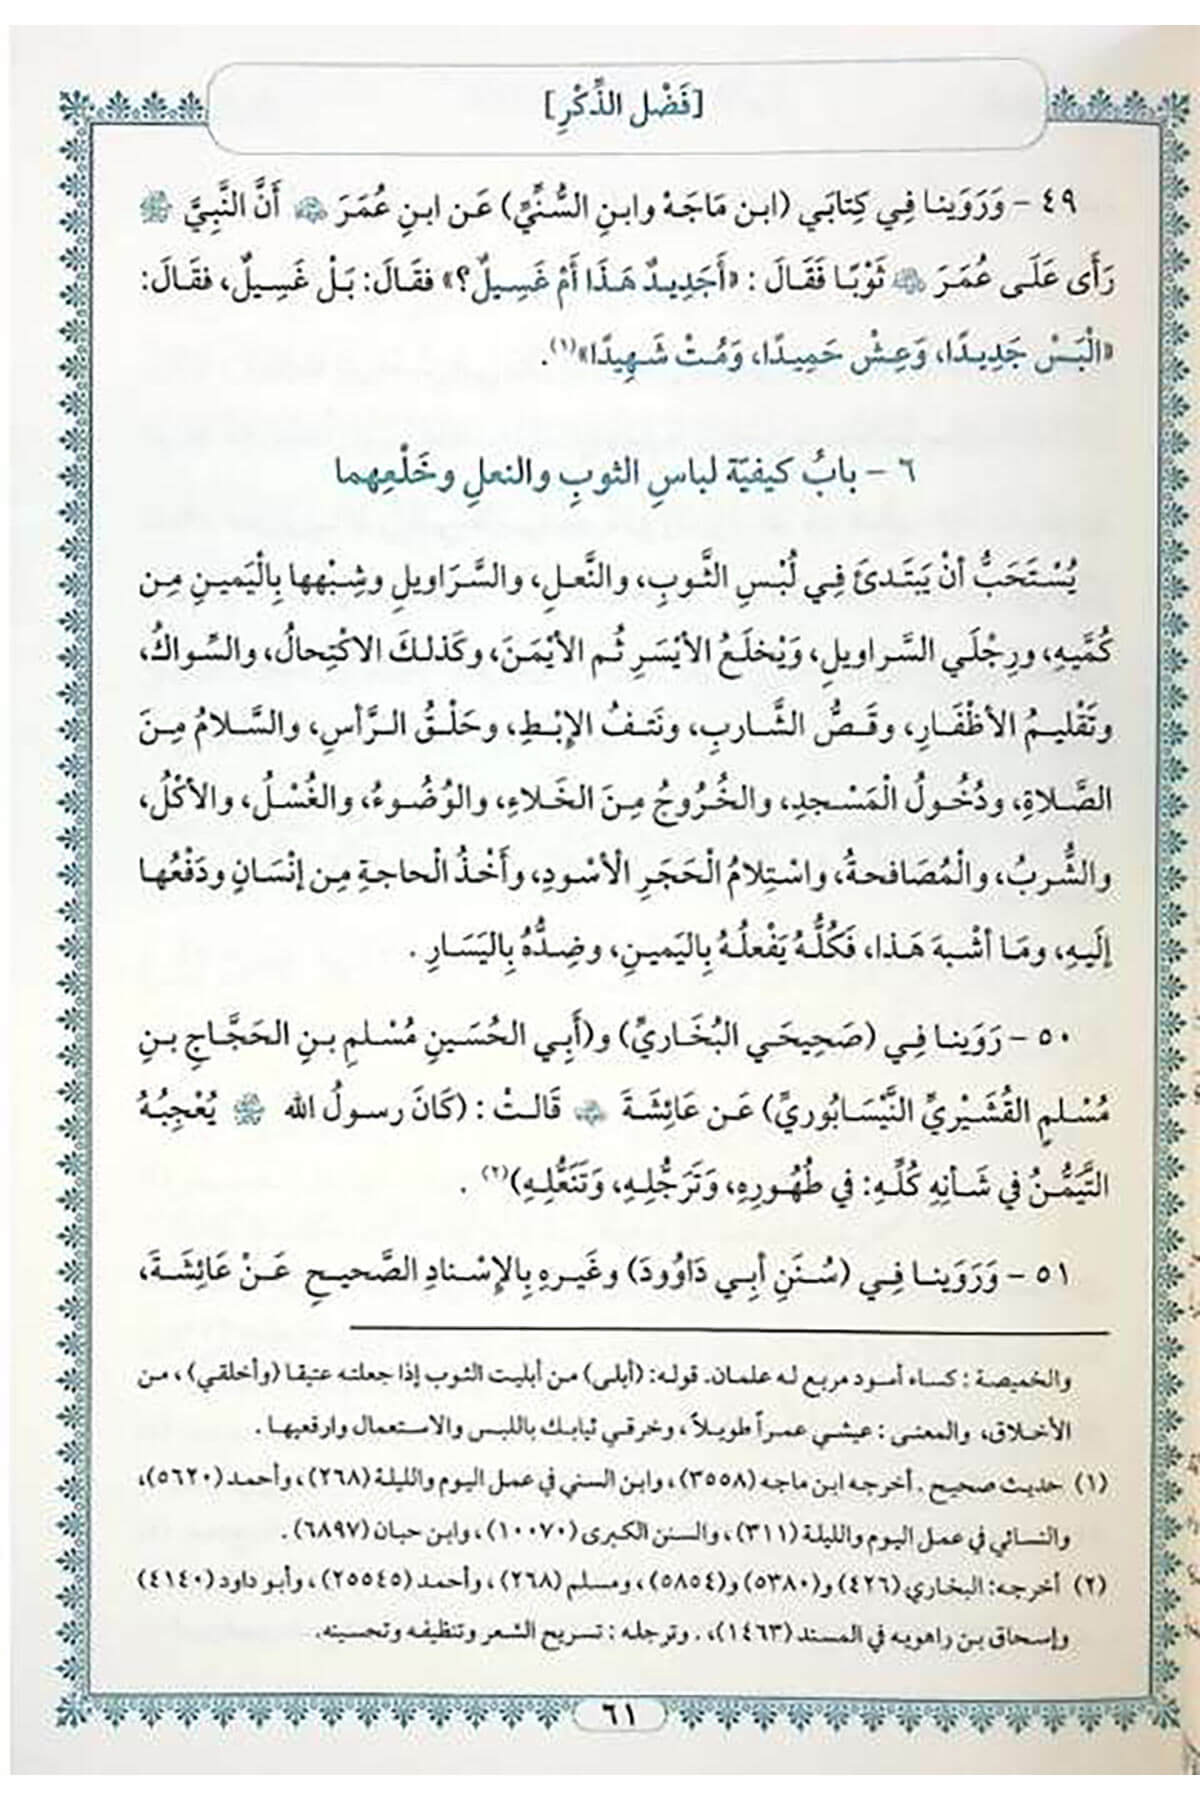 [فَضْل الذِّكْرِ]
٤٩ - وَرَوَينا فِي كِتابَي (ابن مَاجَهْ وابنِ السُّنِّيِّ) عَن ابنِ عُمَرَ ﵄ أَنَّ النَّبِيَّ ﷺ
رَأَى عَلَى عُمَرَ ﵁ ثَوْبًا فَقَالَ : «أَجَدِيدٌ هَذَا أَمْ غَسِيلٌ؟» فقَالَ: بَلْ غَسِيلٌ، فقَالَ:
«الْبَسْ جَدِيدًا، وَعِشْ حَمِيدًا، وَمُتْ شَهِيدًا»(١).
٦ - بابُ كيفيّة لباسِ الثوبِ والنعلِ وخَلْعِهما
يُسْتَحَبُّ أنْ يَبتَدئَ فِي لُبْسِ الثَّوبِ، والنَّعلِ، والسَّرَاويلِ وشِبْهها بِالْيَمينِ مِن
كُمَّيهِ، ورِجْلَي السَّراويلِ، وَيْخلَعُ الأيْسَرِ ثُم الأيْمَنَ، وكَذلكَ الاكْتِحالُ، والسِّواكُ،
وتَقْليمُ الأظْفَارِ، وقَصُّ الشَّاربِ، ونَتفُ الإبْطِ، وحَلْقُ الرَّأسِ، والسَّلامُ مِنَ
الصَّلاةِ، ودُخُولُ الْمَسْجدِ، والخُرُوجُ مِنَ الخَلاءِ، والوُضُوءُ، والغُسْلُ، والأكْلُ،
والشُّربُ، والْمُصَافحةُ، واسْتِلامُ الْحَجَرِ الْأسْودِ، وأَخْذُ الْحاجةِ مِن إنْسَانٍ ودَفْعُها
إلَيهِ، ومَا أشْبهَ هَذا، فَكُلُّهُ يَفْعلُهُ بِاليَمينِ، وضِدُّهُ بِاليَسَارِ .
٥٠ - رَوَينا فِي (صَحِيحَي البُخَاريِّ) و(أَبِي الحُسَينِ مُسْلمِ بنِ الحَجَّاجِ بنِ
مُسْلمٍ القُشَيْريِّ النَّيْسَابُوريِّ) عَن عَائِشَةَ ﵂ قَالتْ : (كَانَ رسولُ الله ﷺ يُعْجِبُهُ
التَّيَمُّنُ في شَأنِهِ كُلِّهِ: في طُهُورِهِ، وَتَرَجُّلِهِ، وَتَنَعُّلِهِ)(٢) .
٥١ - وَرَوَينا فِي (سُنَنِ أَبِي دَاوُودَ) وغَيرِهِ بِالإسْنادِ الصَّحيحِ عَنْ عَائِشَةَ،
والخميصة : كساء أسود مربع له علمان. قوله: (أبلى) من أبليت الثوب إذا جعلته عتيقا (وأخلقي) ، من
الأخلاق، والمعنى : عيشي عمراً طويلاً ، وخرقي ثيابك باللبس والاستعمال وارقعيها .
(١) حديث صحيح . أخرجه ابن ماجه (٣٥٥٨) ، وابن السني في عمل اليوم والليلة (٢٦٨) ، وأحمد (٥٦٢٠)،
والنسائي في عمل اليوم والليلة (٣١١) ، والسنن الكبرى (١٠٠٧٠) ، وابن حبان (٦٨٩٧) .
(٢) أخرجه: البخاري (٤٢٦) و(٥٣٨٠) و(٥٨٥٤) ، ومسلم (٢٦٨) ، وأحمد (٢٥٥٤٥) ، وأبو داود (٤١٤٠)
وإسحاق بن راهويه في المسند (١٤٦٣)، . وترجله : تسريح الشعر وتنظيفه وتحسينه.
٦١